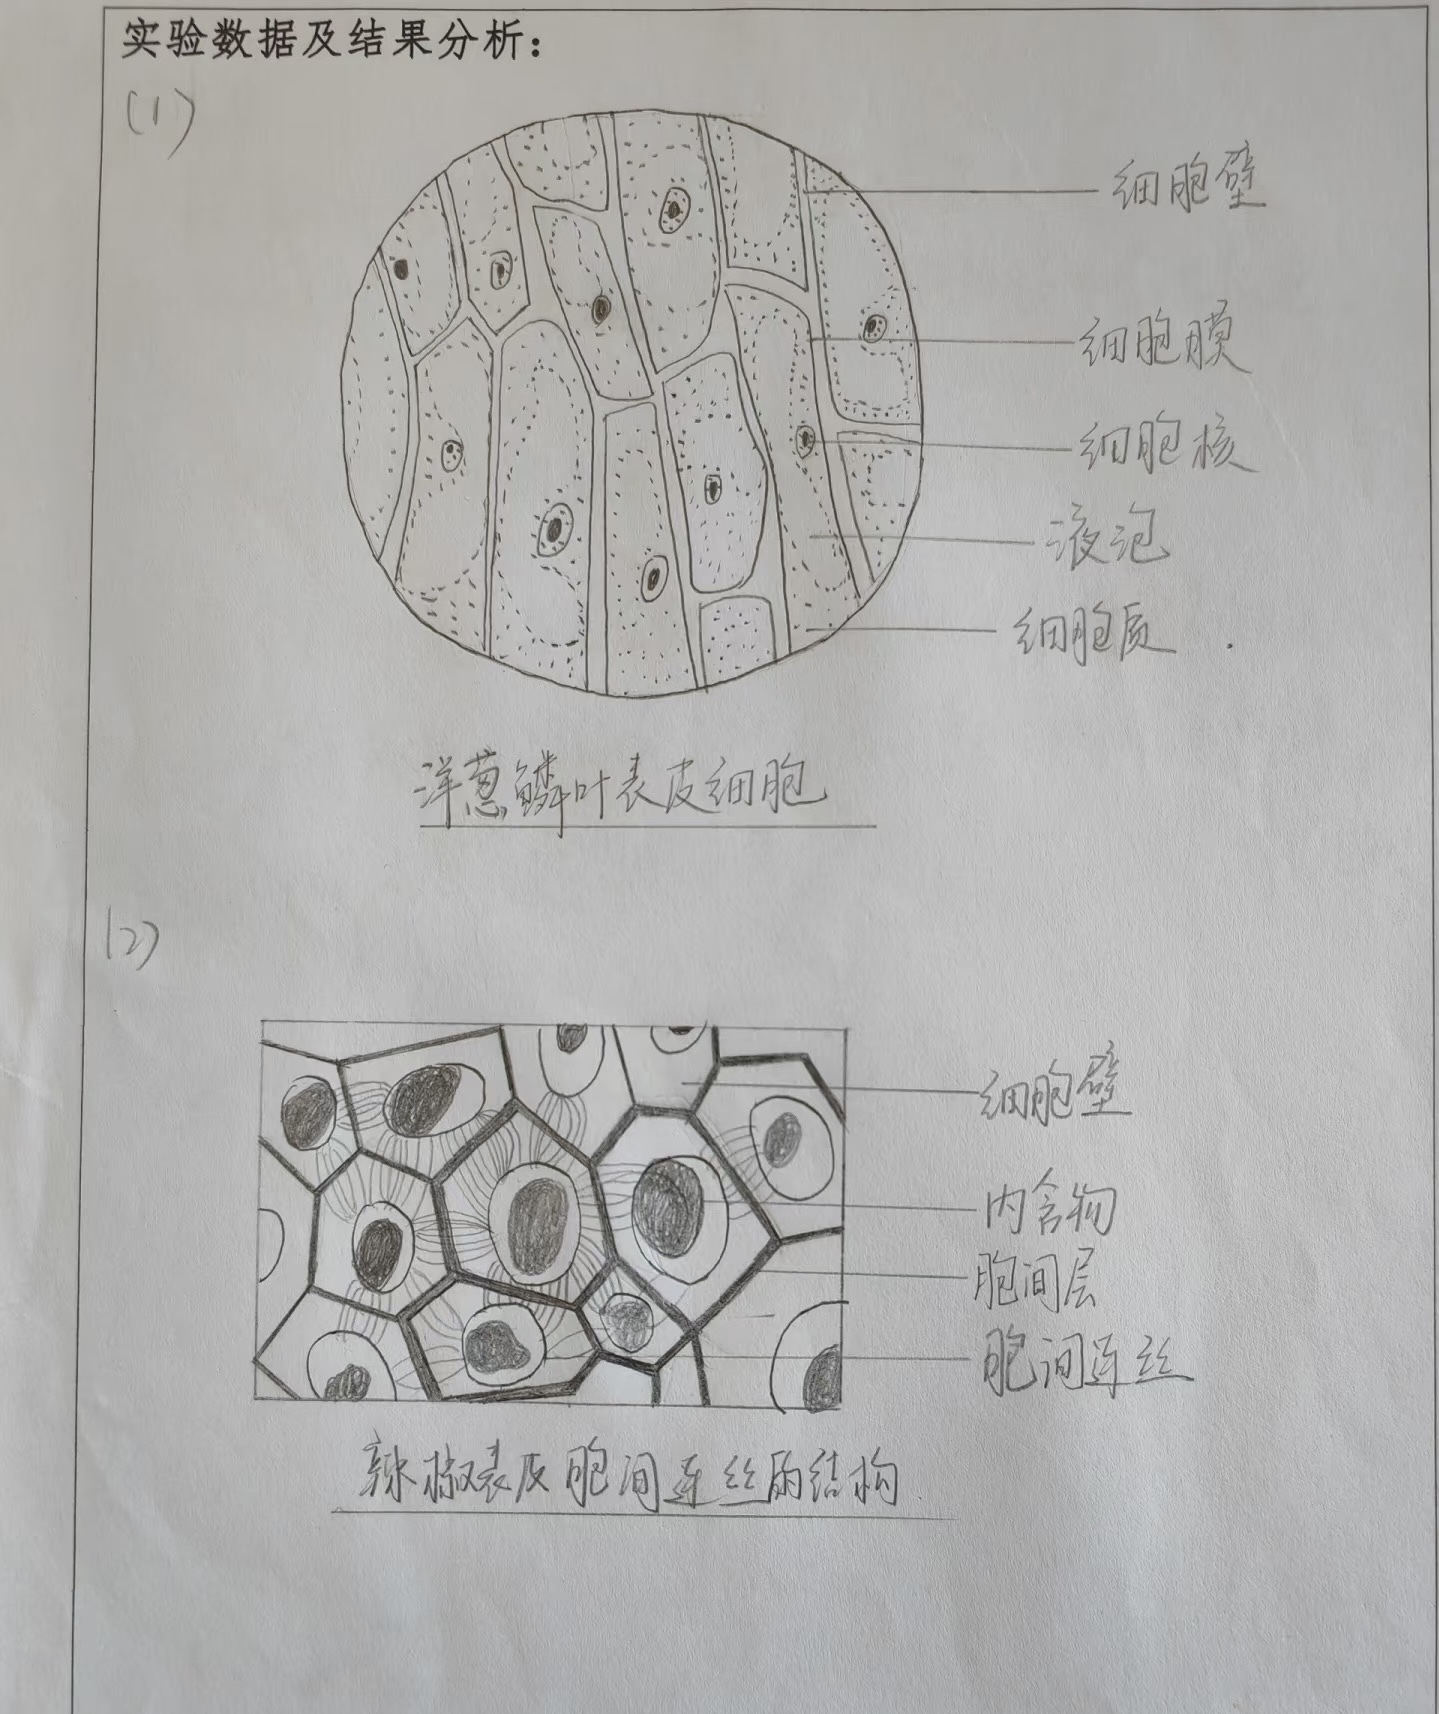 实验数据及结果分析：
(1)
细胞壁
细胞膜
细胞核
液泡
细胞质
洋葱鳞叶表皮细胞
(2)
细胞壁
内含物
胞间层
胞间连丝
辣椒表皮胞间连丝的结构